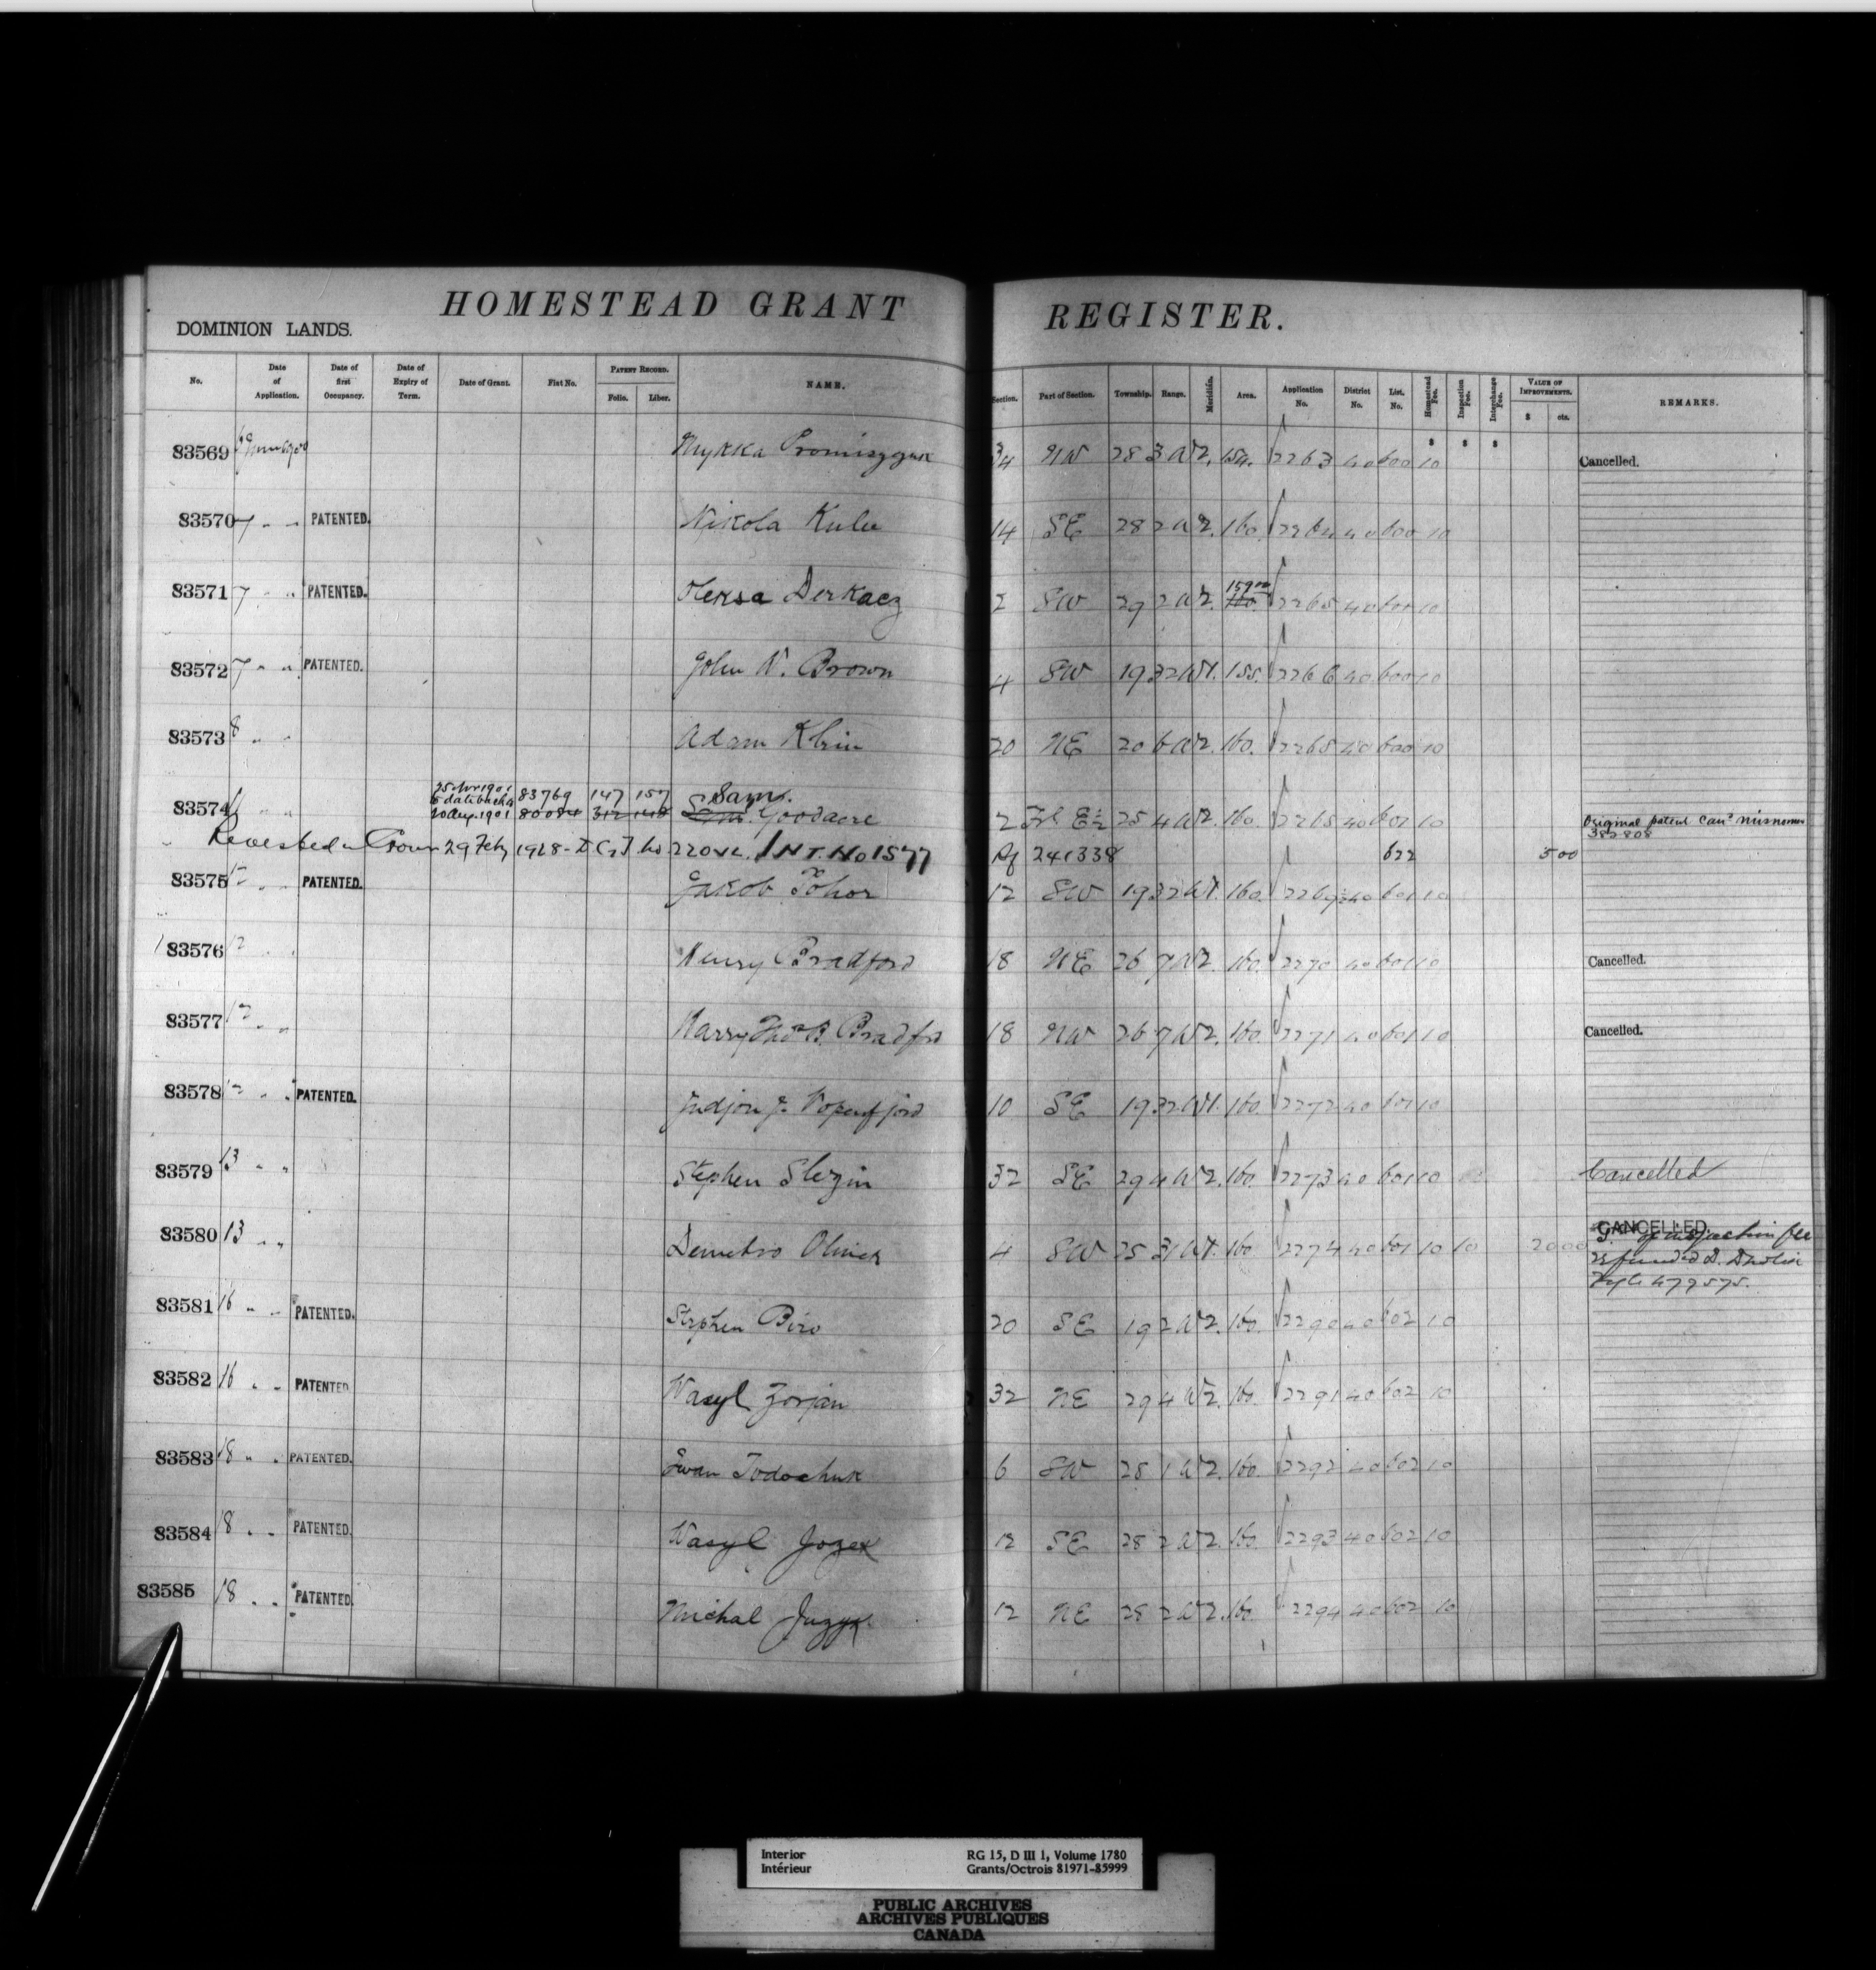 HOMESTEAD GRANT REGISTER.
DOMINION LANDS.
No. Date of Application. Date of first Occupancy. Date of Expiry of Term. Date of Grant. Fiat No. PATENT RECORD. Folio. Liber. NAME. Section. Part of Section. Township. Range. Meridian. Area. Application No. District No. List. No. Homestead Fee. Inspection Fee. Interchange Fee. VALUE OF IMPROVEMENTS. $ cts. REMARKS.
$ $ $
83569 34 NW 28 3 W2. 154. 2263 40 600 10 Cancelled.
83570 7 " " PATENTED. Nikola 14 SE 28 2 W2. 160. 2264 40 600 10
83571 7 " " PATENTED. Oleksa Derkacz 2 SW 29 2 W2. 159 160. 2265 40 600 10
83572 7 " " PATENTED. John W. Brown 4 SW 19 32 W1. 155. 2266 40 600 10
83573 8 " " Adam Klein 20 NE 20 6 W2. 160. 2268 40 600 10
25 Apr 1901 83769 147 157 Sam.
83574 " " 20 Aug. 1901 80084 312 148 Goodacre 2 Frl E½ 25 4 W2. 160. 40 601 10 Original patent Can'd misnomer
382808
Revested in Crown 29 Feby 1928 INT. No 1577 Rf 241338 622 5 00
83575 12 " " PATENTED. Jakob Tohor 12 SW 19 32 W1. 160. 2269 40 601 10
83576 12 " " Henry Bradford 18 NE 26 7 W2. 160. 2270 40 601 10 Cancelled.
83577 12 " " Harry Thos B. Bradford 18 NW 26 7 W2. 160. 2271 40 601 10 Cancelled.
83578 12 " " PATENTED. 10 SE 19 32 W1. 160. 2272 40 601 10
83579 13 " " Stephen Slezin 32 SE 29 4 W2. 160. 2273 40 601 10 Cancelled
83580 13 " " Demetro Olinek 4 SW 25 31 W1. 160. 2274 40 601 10 10 20 00 CANCELLED.
of inspection fee
refunded D.
File 477575.
83581 16 " " PATENTED. Stephen Biro 20 SE 19 2 W2. 160. 2290 40 602 10
83582 16 " " PATENTED Wasyl Zorjan 32 NE 29 4 W2. 160. 2291 40 602 10
83583 18 " " PATENTED. Iwan Todochuk 6 SW 28 1 W2. 160. 2292 40 602 10
83584 18 " " PATENTED. Wasyl Jozek 12 SE 28 2 W2. 160. 2293 40 602 10
83585 18 " " PATENTED. Michal Juzyk 12 NE 28 2 W2. 160. 2294 40 602 10
Interior RG 15, D III 1, Volume 1780
Intérieur Grants/Octrois 81971-85999
PUBLIC ARCHIVES
ARCHIVES PUBLIQUES
CANADA